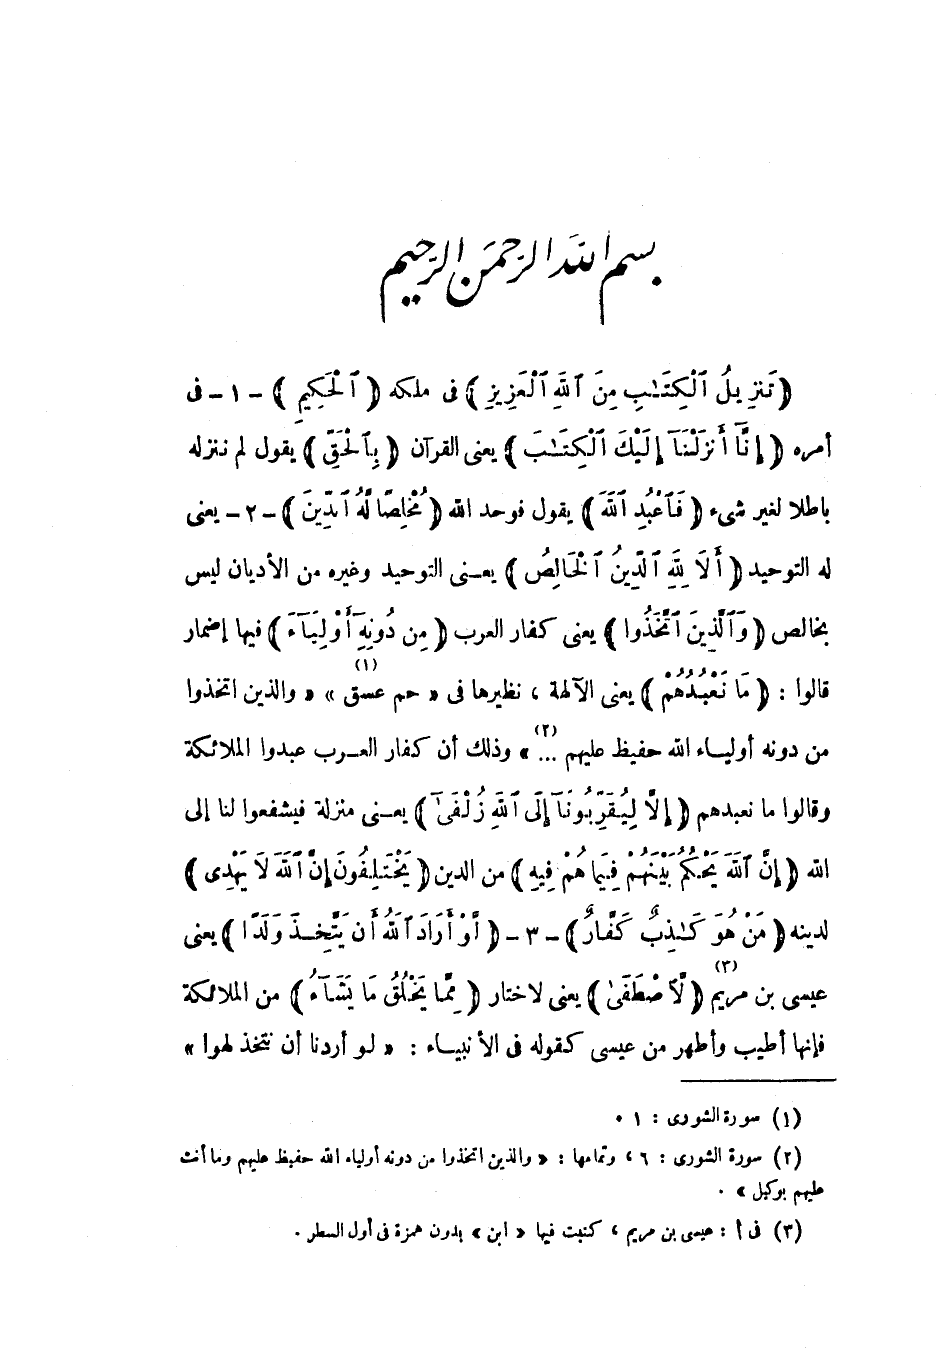 بسم الله الرحمن الرحيم
﴿ تَنزِيلُ ٱلْكِتَـٰبِ مِنَ ٱللَّهِ ٱلْعَزِيزِ ﴾ فى ملكه ﴿ ٱلْحَكِيمِ ﴾ - ١ - فى
أمره ﴿ إِنَّآ أَنزَلْنَآ إِلَيْكَ ٱلْكِتَـٰبَ ﴾ يعنى القرآن ﴿ بِٱلْحَقِّ ﴾ يقول لم ننزله
باطلا لغير شىء ﴿ فَٱعْبُدِ ٱللَّهَ ﴾ يقول فوحد الله ﴿ مُخْلِصًا لَّهُ ٱلدِّينَ ﴾ - ٢ - يعنى
له التوحيد ﴿ أَلَا لِلَّهِ ٱلدِّينُ ٱلْخَالِصُ ﴾ يعنى التوحيد وغيره من الأديان ليس
بخالص ﴿ وَٱلَّذِينَ ٱتَّخَذُوا ﴾ يعنى كفار العرب ﴿ مِن دُونِهِٓ أَوْلِيَآءَ ﴾ فيها إضمار
قالوا : ﴿ مَا نَعْبُدُهُمْ ﴾ يعنى الآلهة ، نظيرها فى « حم عسق (١) » « والذين اتخذوا
من دونه أولياء الله حفيظ عليهم ... (٢) » وذلك أن كفار العرب عبدوا الملائكة
وقالوا ما نعبدهم ﴿ إِلَّا لِيُقَرِّبُونَآ إِلَى ٱللَّهِ زُلْفَىٰ ﴾ يعنى منزلة فيشفعوا لنا إلى
الله ﴿ إِنَّ ٱللَّهَ يَحْكُمُ بَيْنَهُمْ فِيمَا هُمْ فِيهِ ﴾ من الدين ﴿ يَخْتَلِفُونَ إِنَّ ٱللَّهَ لَا يَهْدِى ﴾
لدينه ﴿ مَنْ هُوَ كَـٰذِبٌ كَفَّارٌ ﴾ - ٣ - ﴿ لَّوْ أَرَادَ ٱللَّهُ أَن يَتَّخِذَ وَلَدًا ﴾ يعنى
عيسى بن مريم (٣) ﴿ لَّٱصْطَفَىٰ ﴾ يعنى لاختار ﴿ مِمَّا يَخْلُقُ مَا يَشَآءُ ﴾ من الملائكة
فإنها أطيب وأطهر من عيسى كقوله فى الأنبياء : « لو أردنا أن نتخذ لهوا »
(١) سورة الشورى : ١ .
(٢) سورة الشورى : ٦ ، وتمامها : « والذين اتخذوا من دونه أولياء الله حفيظ عليهم وما أنت
عليهم بوكيل » .
(٣) فى أ : عيسى بن مريم ، كتبت فيها « ابن » بدون همزة فى أول السطر .